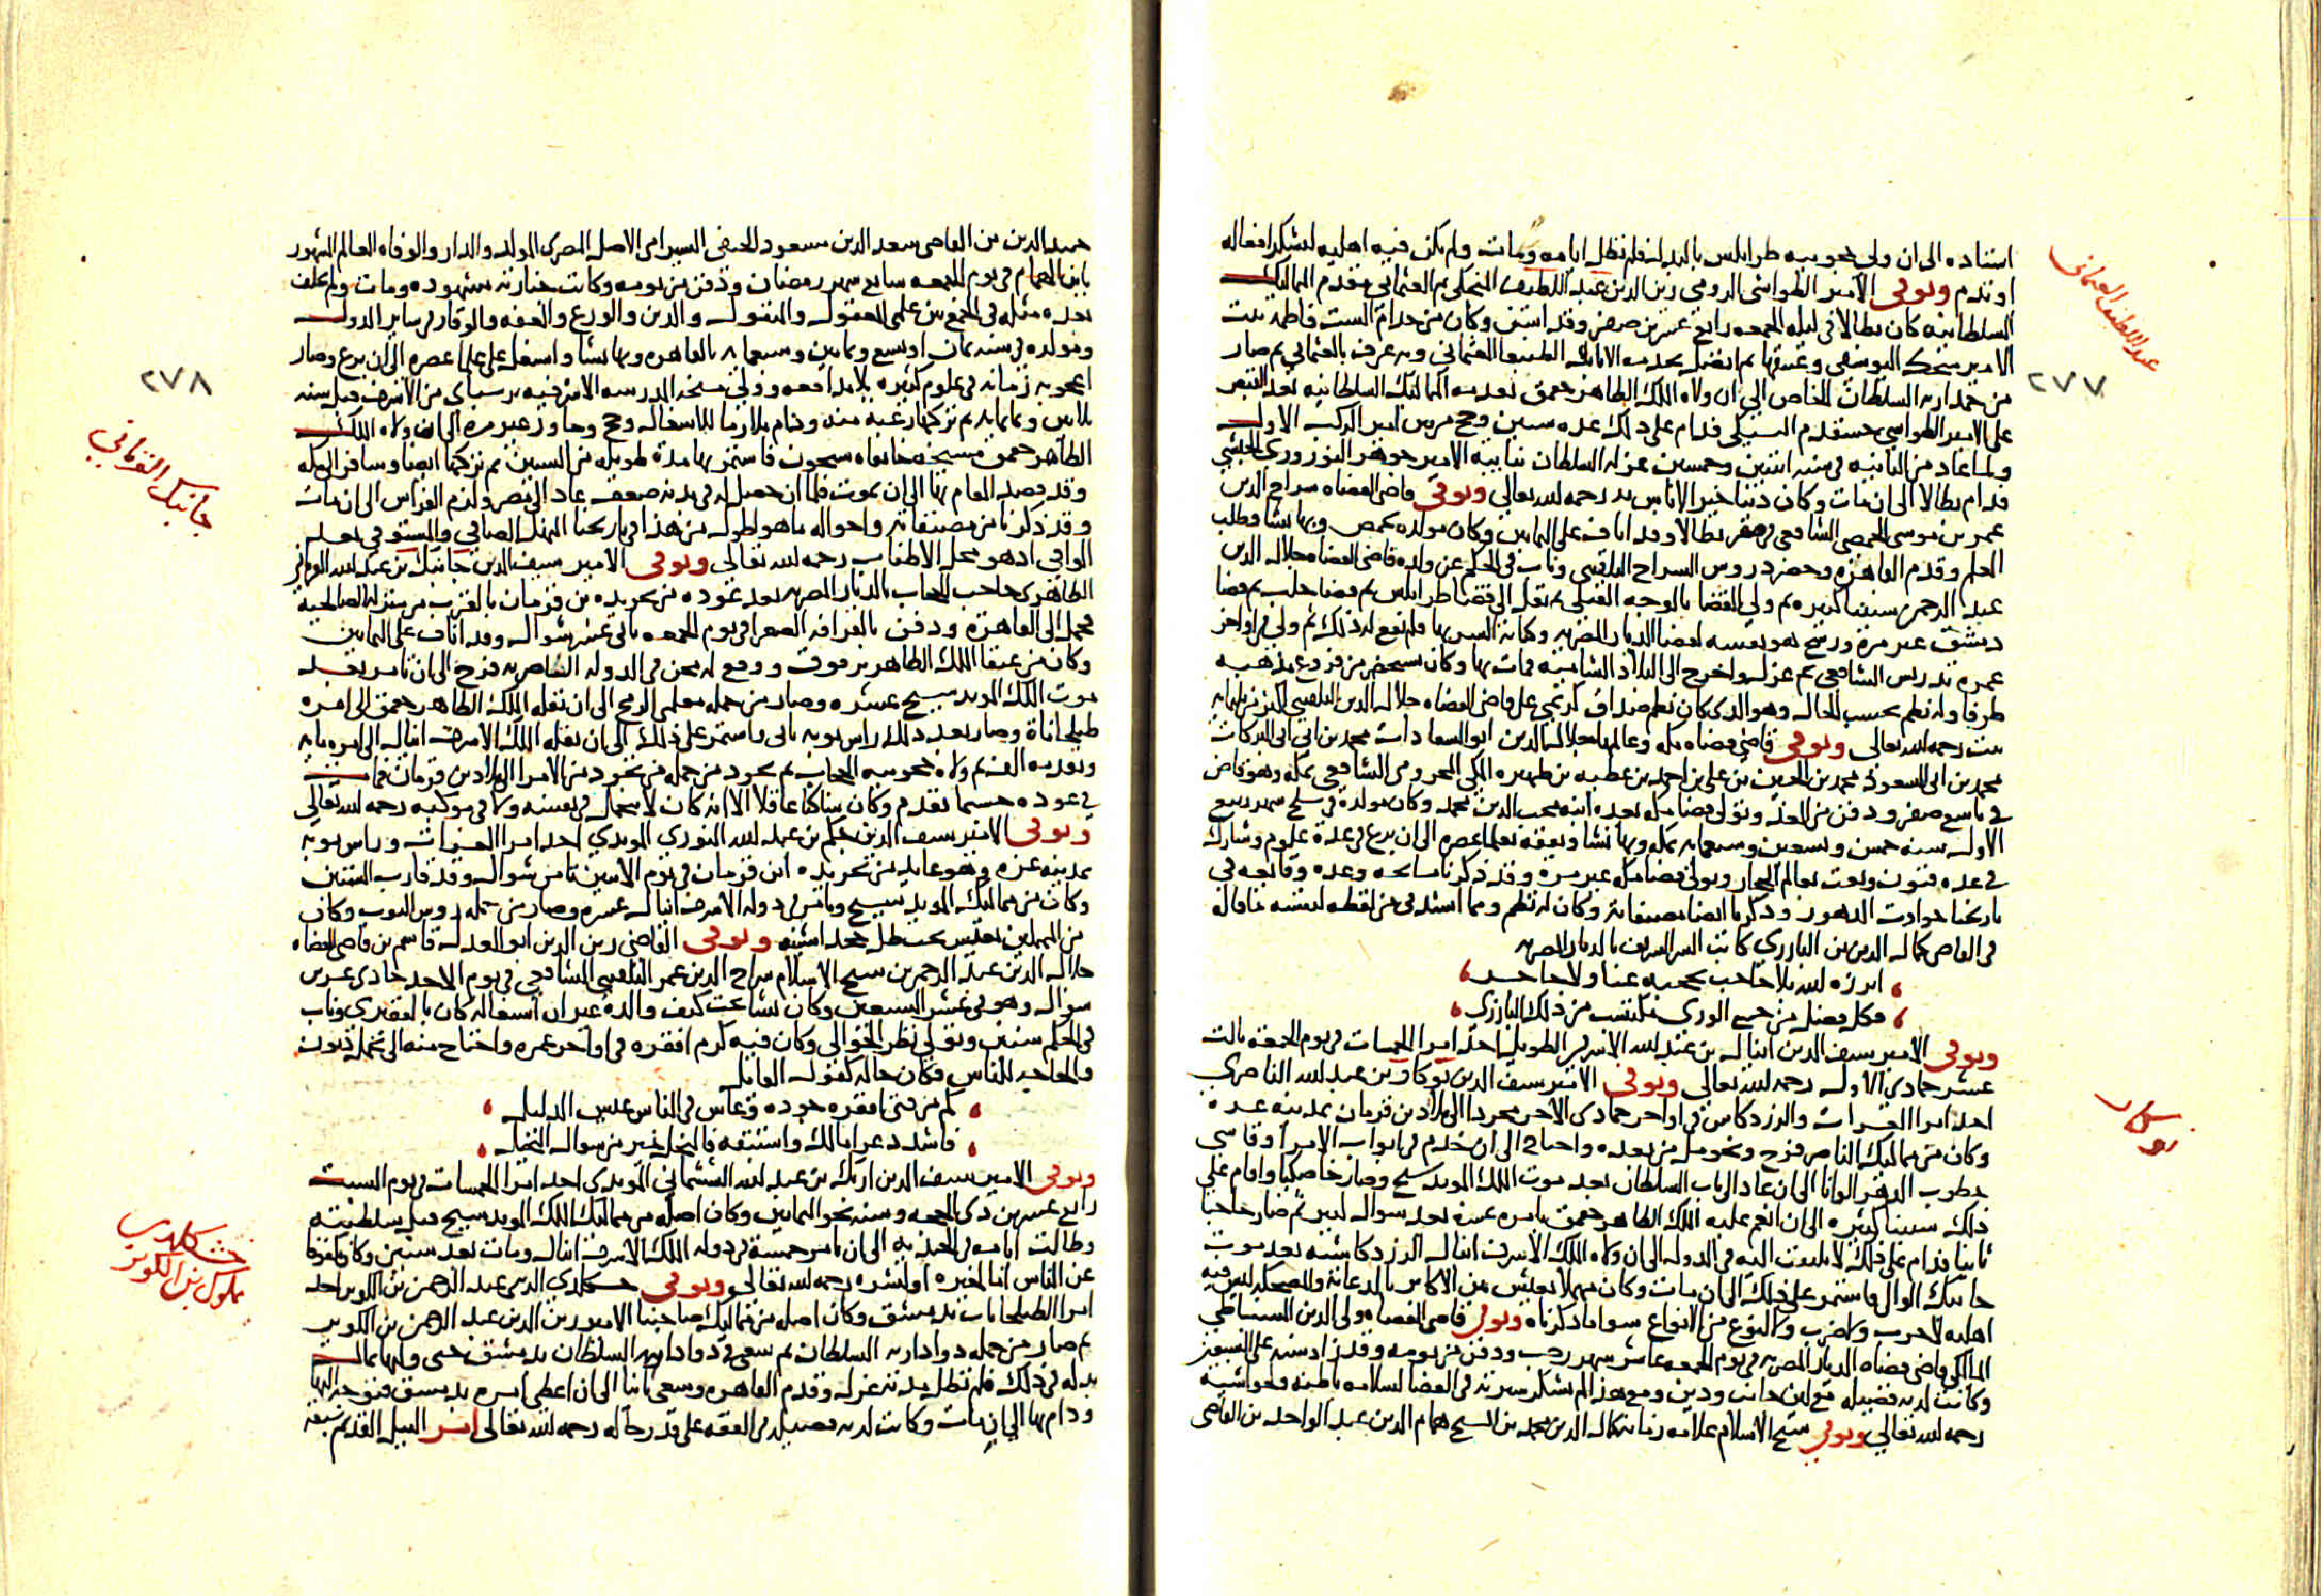 استاده الى ان ولى حجوبيه طرابلس بالبدل فلم تطل ايامه ومات ولم يكن فيه اهليه لتشكر افعاله
او تذم وتوفى الامير الطواشى الرومى زين الدين عبد اللطيف المنجكى ثم العثمانى مقدم المماليك
السلطانيه كان بطالا فى ليله الجمعه رابع عشرين صفر وقد اسن وكان من خدام الست فاطمه بنت
الامير منجك اليوسفى وعتيقها ثم اتصل بخدمه الاتابك الطنبغا العثمانى وبه عرف بالعثمانى ثم صار
من جمداريه السلطان الخاص الى ان ولاه الملك الظاهر جقمق تقدمه المماليك السلطانيه بعد القبض
على الامير الطواشى خشقدم اليشبكى فدام على ذلك عده سنين وحج مرتين امير الركب الاول
ولما عاد من الثانيه فى سنه اثنتين وخمسين عزله السلطان بنايبه الامير جوهر النوروزى الحبشى
فدام بطالا الى ان مات وكان دينا خيرا لاباس به رحمه الله تعالى وتوفى قاضى القضاه سراج الدين
عمر بن موسى الحمصى الشافعى فى صفر بطالا وقد اناف على الثمانين وكان مولده بحمص وبها نشا وطلب
العلم وقدم القاهره وحضر دروس السراج البلقينى وناب فى الحكم عن ولده قاضى القضاه جلال الدين
عبد الرحمن سنينا كثيره ثم ولى القضا بالوجه القبلى ثم نقل الى قضا طرابلس ثم قضا حلب ثم قضا
دمشق غير مره ورشح هو نفسه لقضا الديار المصريه وكاتب السر بها فلم يقع له ذلك ثم ولى فى اواخر
عمره تدريس الشافعى ثم عزل واخرج الى البلاد الشاميه فمات بها وكان يستحضر من فروع مذهبه
طرفا وله نظم بحسب الحال وهو الذى كان نظم صداق كريمتى على قاضى القضاه جلال الدين البلقينى اكثر من ثلثمايه
بيت رحمه الله تعالى وتوفى قاضى قضاه مكه وعالمها جلال الدين ابو السعادات محمد بن ابى البركات
محمد بن ابى السعود محمد بن الحسين بن على بن احمد بن عطيه بن ظهيره المكى المخزومى الشافعى بمكه وهو قاض
فى تاسع صفر ودفن من الغد وتولى قضا مكه بعده ابنه محب الدين محمد وكان مولده فى سلخ شهر ربيع
الاول سنه خمس وتسعين وسبعمايه بمكه وبها نشا وتفقه بعلما عصره الى ان برع فى عده علوم وشارك
فى عده فنون ونعت بعالم الحجاز وتولى قضا مكه غير مره وقد ذكرنا مشايخه وعده وقايعه فى
تاريخنا حوادث الدهور وذكرنا ايضا مصنفاته وكان له نظم ومما انشدنى من لفظه لنفسه ما قاله
فى القاضى كمال الدين بن البارزى كاتب السر الشريف بالديار المصريه
ابرزه الله بلا حاجب يحجبه عنا ولا جاحد
فكل فضل من جميع الورى مكتسب من ذلك البارزى
وتوفى الامير سيف الدين اينال بن عبد الله الاشرفى الطويل احد امرا الخمسات فى يوم الجمعه ثالث
عشر جمادى الاولى رحمه الله تعالى وتوفى الامير سيف الدين نوكار بن عبد الله الناصرى
احد امرا العشرات والزردكاش فى اواخر جمادى الاخر مجردا الى بلاد بن قرمان بمدينه غزه
وكان من مماليك الناصر فرج وتخومل من بعده واحتاج الى ان خدم فى ابواب الامرا وقاسى
خطوب الدهر الوانا الى ان عاد الى باب السلطان بعد موت الملك المويد شيخ وصار خاصكيا واقام على
ذلك سنينا كثيره الى ان انعم عليه الملك الظاهر جقمق بامره عشره بعد سوال كبير ثم صار حاجبا
ثانيا فدام على ذلك لا يلتفت اليه فى الدوله الى ان ولاه الملك الاشرف اينال الزردكاشيه بعد موت
جانبك الوالى فاستمر على ذلك الى ان مات وكان مهملا يعيش بين الاكابر بالدعابه والضحكه ليس فيه
اهليه لا لحرب ولا لضرب ولا لنوع من الانواع سوا ما ذكرناه وتوفى قاضى القضاه ولى الدين السنباطى
المالكى قاضى قضاه الديار المصريه فى يوم الجمعه عاشر شهر رجب ودفن من يومه وقد زاد سنه على السبعين
وكانت لديه فضيله مع لين جانب ودين ومع هذا لم تشكر سيرته فى القضا لسلامه باطنه وحواشيه
رحمه الله تعالى وتوفى شيخ الاسلام علامه زمانه كمال الدين محمد بن الشيخ همام الدين عبد الواحد بن القاضى
عبد اللطيف العثمانى
٢٧٧
نوكار
حميد الدين بن القاضى سعد الدين مسعود الحنفى السيرامى الاصل المصرى المولد والدار والوفاه العالم المشهور
بابن الهمام فى يوم الجمعه سابع شهر رمضان ودفن من يومه وكانت جنازته مشهوده ومات ولم يخلف
بعده مثله فى الجمع بين علمى المعقول والمنقول والدين والورع والعفه والوقار فى ساير الدول
ومولده فى سنه ثمان او تسع وثمانين وسبعمايه بالقاهره وبها نشا واشتغل على علما عصره الى ان برع وصار
اعجوبه زمانه فى علوم كثيره بلا مدافعه وولى مشيخه المدرسه الاشرفيه برسباى من الاشرف قبل سنه
ثلاثين وثمانمايه ثم تركها رغبه منه ودام ملازما للاشتغال وحج وجاور غير مره الى ان ولاه الملك
الظاهر جقمق مشيخه خانقاه شيخون فاستمر بها مده طويله من السنين ثم تركها ايضا وسافر الى مكه
وقد قصد المقام بها الى ان يموت فلما ان حصل له فى بدنه ضعف عاد الى مصر ولزم الفراش الى ان مات
وقد ذكرنا من مصنفاته واحواله ما هو اطول من هذا فى تاريخنا المنهل الصافى والمستوفى بعد
الوافى اذ هو محل الاطناب رحمه الله تعالى وتوفى الامير سيف الدين جانبك بن عبد الله القرمانى
الظاهرى حاجب الحجاب بالديار المصريه بعد عوده من تجريده بن قرمان بالقرب من منزله الصالحيه
فحمل الى القاهره ودفن بالقرافه الصغرى فى يوم الجمعه ثانى عشر شوال وقد اناف على الثمانين
وكان من عتقا الملك الظاهر برقوق ووقع له محن فى الدوله الناصريه فرج الى ان تامر بعد
موت الملك المويد شيخ عشره وصار من جمله معلمى الرمح الى ان نقله الملك الظاهر جقمق الى امره
طبلخاناه وصار بعد ذلك راس نوبه ثانى واستمر على ذلك الى ان نقله الملك الاشرف اينال الى امره مايه
وتقدمه الف ثم ولاه حجوبيه الحجاب ثم تجرد من جمله من تجرد من الامرا الى بلاد بن قرمان فمات
فى عوده حسبما تقدم وكان ساكنا عاقلا الا انه كان لا يتجمل فى نفسه ولا فى موكبه رحمه الله تعالى
وتوفى الامير سيف الدين جكم بن عبد الله النورى المويدى احد امرا العشرات وراس نوبه
بمدينه غزه وهو عايد من تجريده ابن قرمان فى يوم الاثنين ثامن شوال وقد قارب الستين
وكان من مماليك المويد شيخ وتامر فى دوله الاشرف اينال عشره وصار من جمله روس النوب وكان
من المهملين يعيش تحت ظل خجداشيته وتوفى القاضى زين الدين ابو العدل قاسم بن قاضى القضاه
جلال الدين عبد الرحمن بن شيخ الاسلام سراج الدين عمر البلقينى الشافعى فى يوم الاحد حادى عشرين
شوال وهو فى عشر السبعين وكان نشا تحت كنف والده غير ان اشتغاله كان بالفقيرى وناب
فى الحكم سنين وتولى نظر الجوالى وكان فيه كرم افقره فى اواخر عمره واحتاج منه الى تحمل ديون
والحاجه للناس فكان حاله كقول القايل
كم من فتى افقره جوده وعاش فى الناس عيش الذليل
فاشدد عرا مالك واستبقه فالبخل خير من سوال البخيل
وتوفى الامير سيف الدين اربك بن عبد الله الششمانى المويدى احد امرا الخمسات فى يوم السبت
رابع عشرين ذى الحجه وسنه نحو الثمانين وكان اصله من مماليك الملك المويد شيخ قبل سلطنته
وطالت ايامه فى الجنديه الى ان تامر خمسه فى دوله الملك الاشرف اينال ومات بعد سنين وكان كفوفا
عن الناس اما لخيره او لشره رحمه الله تعالى وتوفى خشكلدى الزينى عبد الرحمن بن الكويز احد
امرا الطبلخانات بدمشق وكان اصله من مماليك صاحبنا الامير زين الدين عبد الرحمن بن الكويز
ثم صار من جمله دواداريه السلطان ثم سعى فى دواداريه السلطان بدمشق حتى وليها بمال
بذله فى ذلك فلم تطل مدته وعزل وقدم القاهره وسعى ثانيا الى ان اعطى امره بدمشق فتوجه اليها
ودام بها الى ان مات وكانت لديه فضيله فى الفقه على قدر حاله رحمه الله تعالى امر النيل القديم تسعه
٢٧٨
جانبك القرمانى
خشكلدى
مملوك بن الكويز